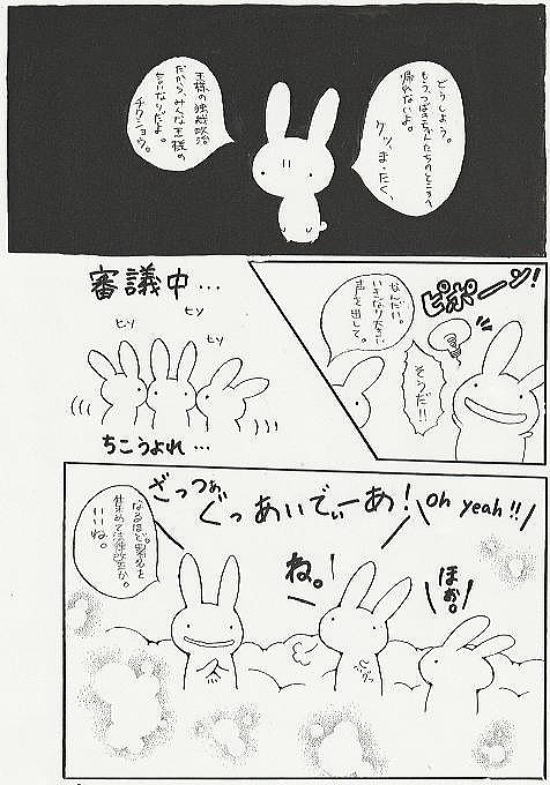 どうしよう。
もう、つばきちゃんたちのところへ
帰れないよ。
クッ、ま、たく、
王様の独裁政治
だから、みんな王様の
言いなりだよ。
チクショウ。
ピポーン!
そうだ!!
なんだい。
いきなり大きい
声を出して。
審議中…
ヒソ
ヒソ
ヒソ
ちこうよれ…
Oh yeah!!
ざっつぁ
ぐっあいでぃーあ!
なるほど。署名を
集めて法律改正か。
いいね。
ね。
ほぉ。